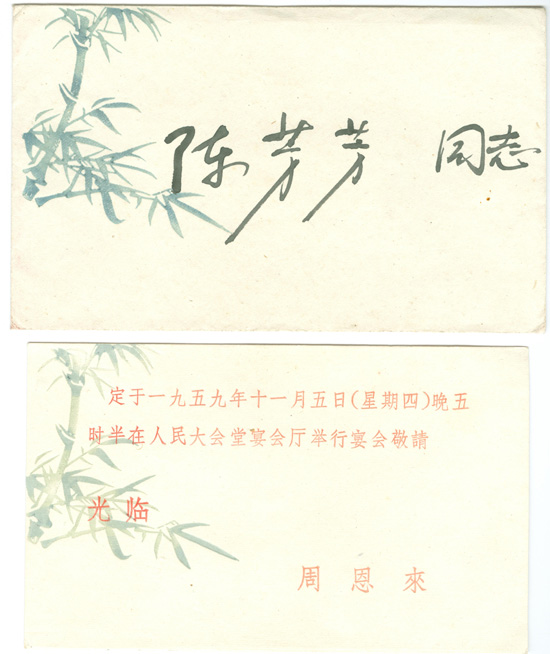 陈芳芳 同志
定于一九五九年十一月五日(星期四)晚五
时半在人民大会堂宴会厅举行宴会敬請
光临
周恩來